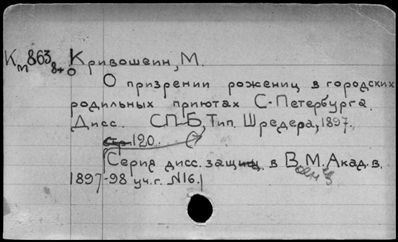 Кm 863 8+0 Кривошеин, М.
О призрении рожениц в городских
родильных приютах С-Петербурга.
Дисс. СПБ, Тип. Шредера, 1897.
стр 120.
(Серия дисс. защищ. в В.М. Акад. в
1897-98 уч. г. N16.)